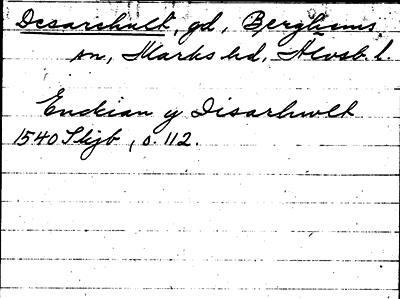 Desarhult, gd, Berghems
sn, Marks hd, Älvsb. l.
Endrian y Disarhwlt
1540 Skjb, s. 112.